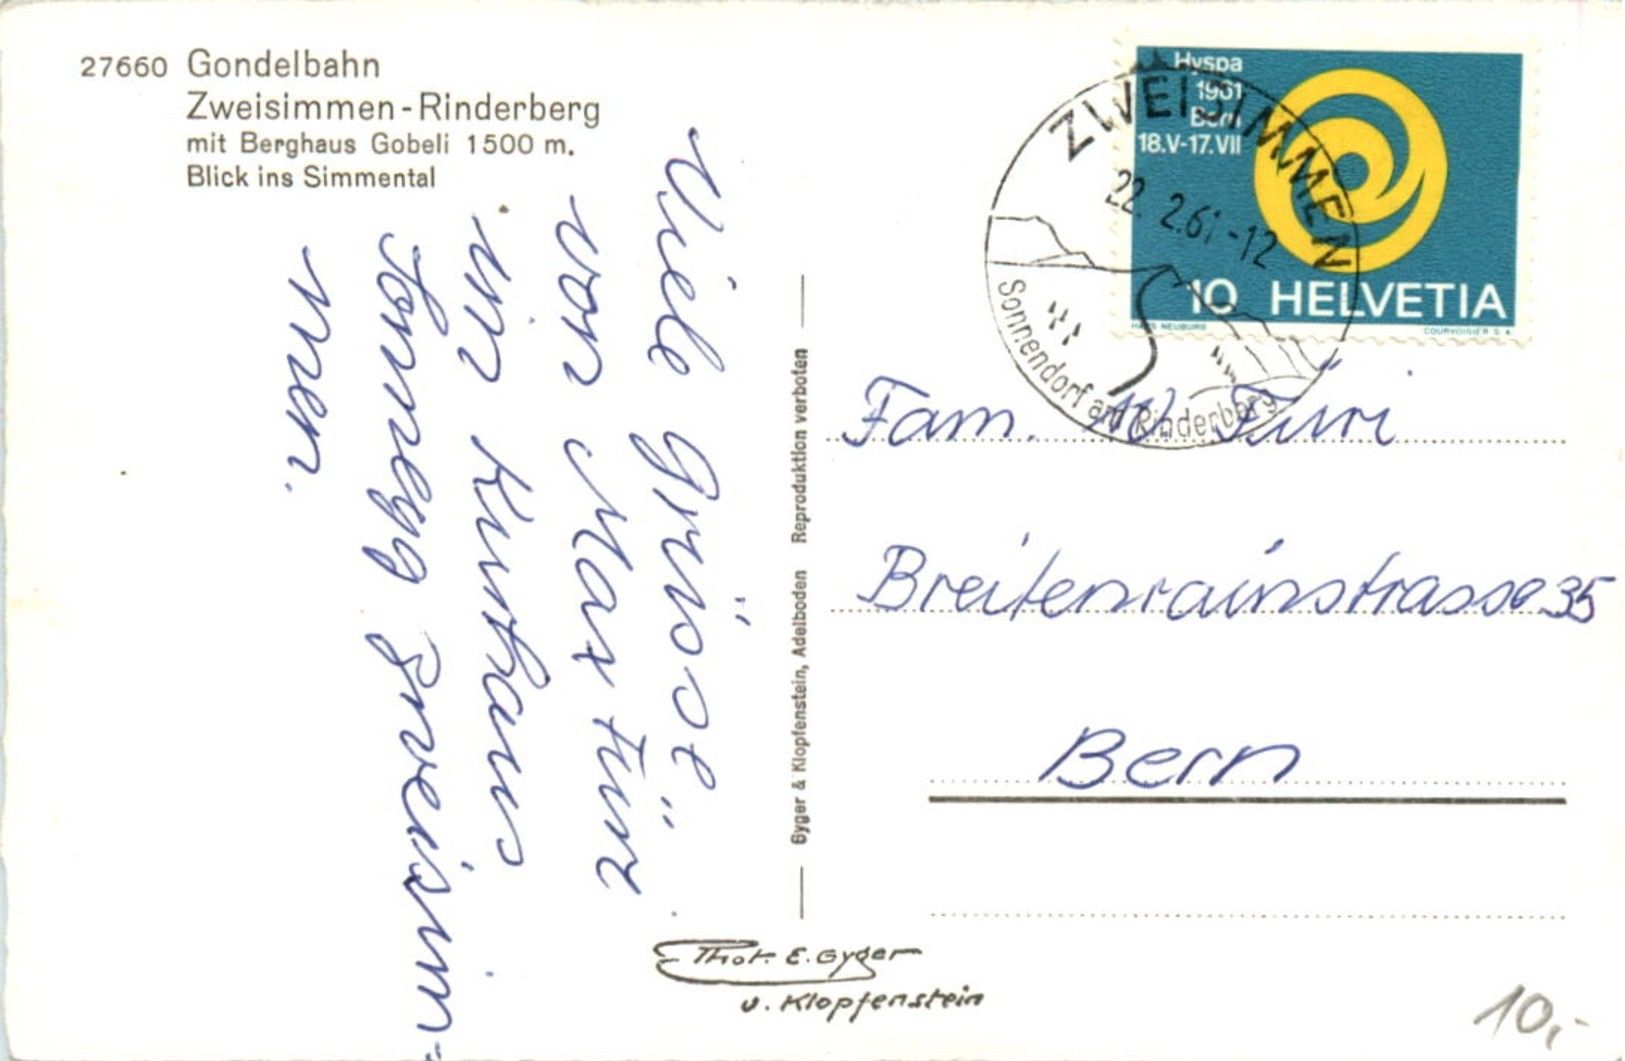 27660 Gondelbahn
Zweisimmen-Rinderberg
mit Berghaus Gobeli 1500 m.
Blick ins Simmental
Viele Grüsse
von Max Füri
im Kurhaus
Sonnegg Zweisim=
men.
Gyger & Klopfenstein, Adelboden Reproduktion verboten
Phot. E. Gyger
u. Klopfenstein
Hyspa
1961
Bern
18.V-17.VII
10 HELVETIA
HANS NEUBURG COURVOISIER S.A.
ZWEISIMMEN
22. 2.61-12
Sonnendorf am Rinderberg
Fam. W. Füri
Breitenrainstrasse 35
Bern
10,-